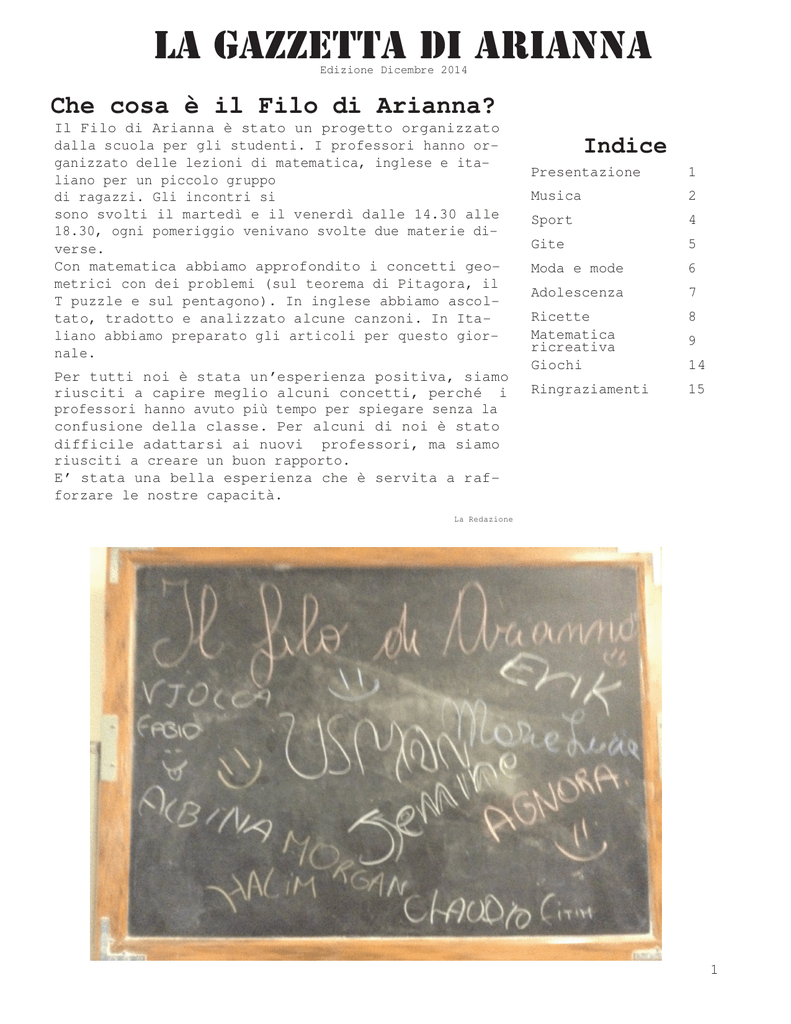 LA GAZZETTA DI ARIANNA
Edizione Dicembre 2014
Che cosa è il Filo di Arianna?
Il Filo di Arianna è stato un progetto organizzato
dalla scuola per gli studenti. I professori hanno or-
ganizzato delle lezioni di matematica, inglese e ita-
liano per un piccolo gruppo
di ragazzi. Gli incontri si
sono svolti il martedì e il venerdì dalle 14.30 alle
18.30, ogni pomeriggio venivano svolte due materie di-
verse.
Con matematica abbiamo approfondito i concetti geo-
metrici con dei problemi (sul teorema di Pitagora, il
T puzzle e sul pentagono). In inglese abbiamo ascol-
tato, tradotto e analizzato alcune canzoni. In Ita-
liano abbiamo preparato gli articoli per questo gior-
nale.
Per tutti noi è stata un'esperienza positiva, siamo
riusciti a capire meglio alcuni concetti, perché i
professori hanno avuto più tempo per spiegare senza la
confusione della classe. Per alcuni di noi è stato
difficile adattarsi ai nuovi professori, ma siamo
riusciti a creare un buon rapporto.
E' stata una bella esperienza che è servita a raf-
forzare le nostre capacità.
La Redazione
Indice
Presentazione 1
Musica 2
Sport 4
Gite 5
Moda e mode 6
Adolescenza 7
Ricette 8
Matematica
ricreativa 9
Giochi 14
Ringraziamenti 15
Il filo di Arianna
ERIK
VJOLCA
FABIO
USMAN
Jemine
AGNORA.
ALBINA
MORGAN
HALIM
CLAUDIO
FITIM
1